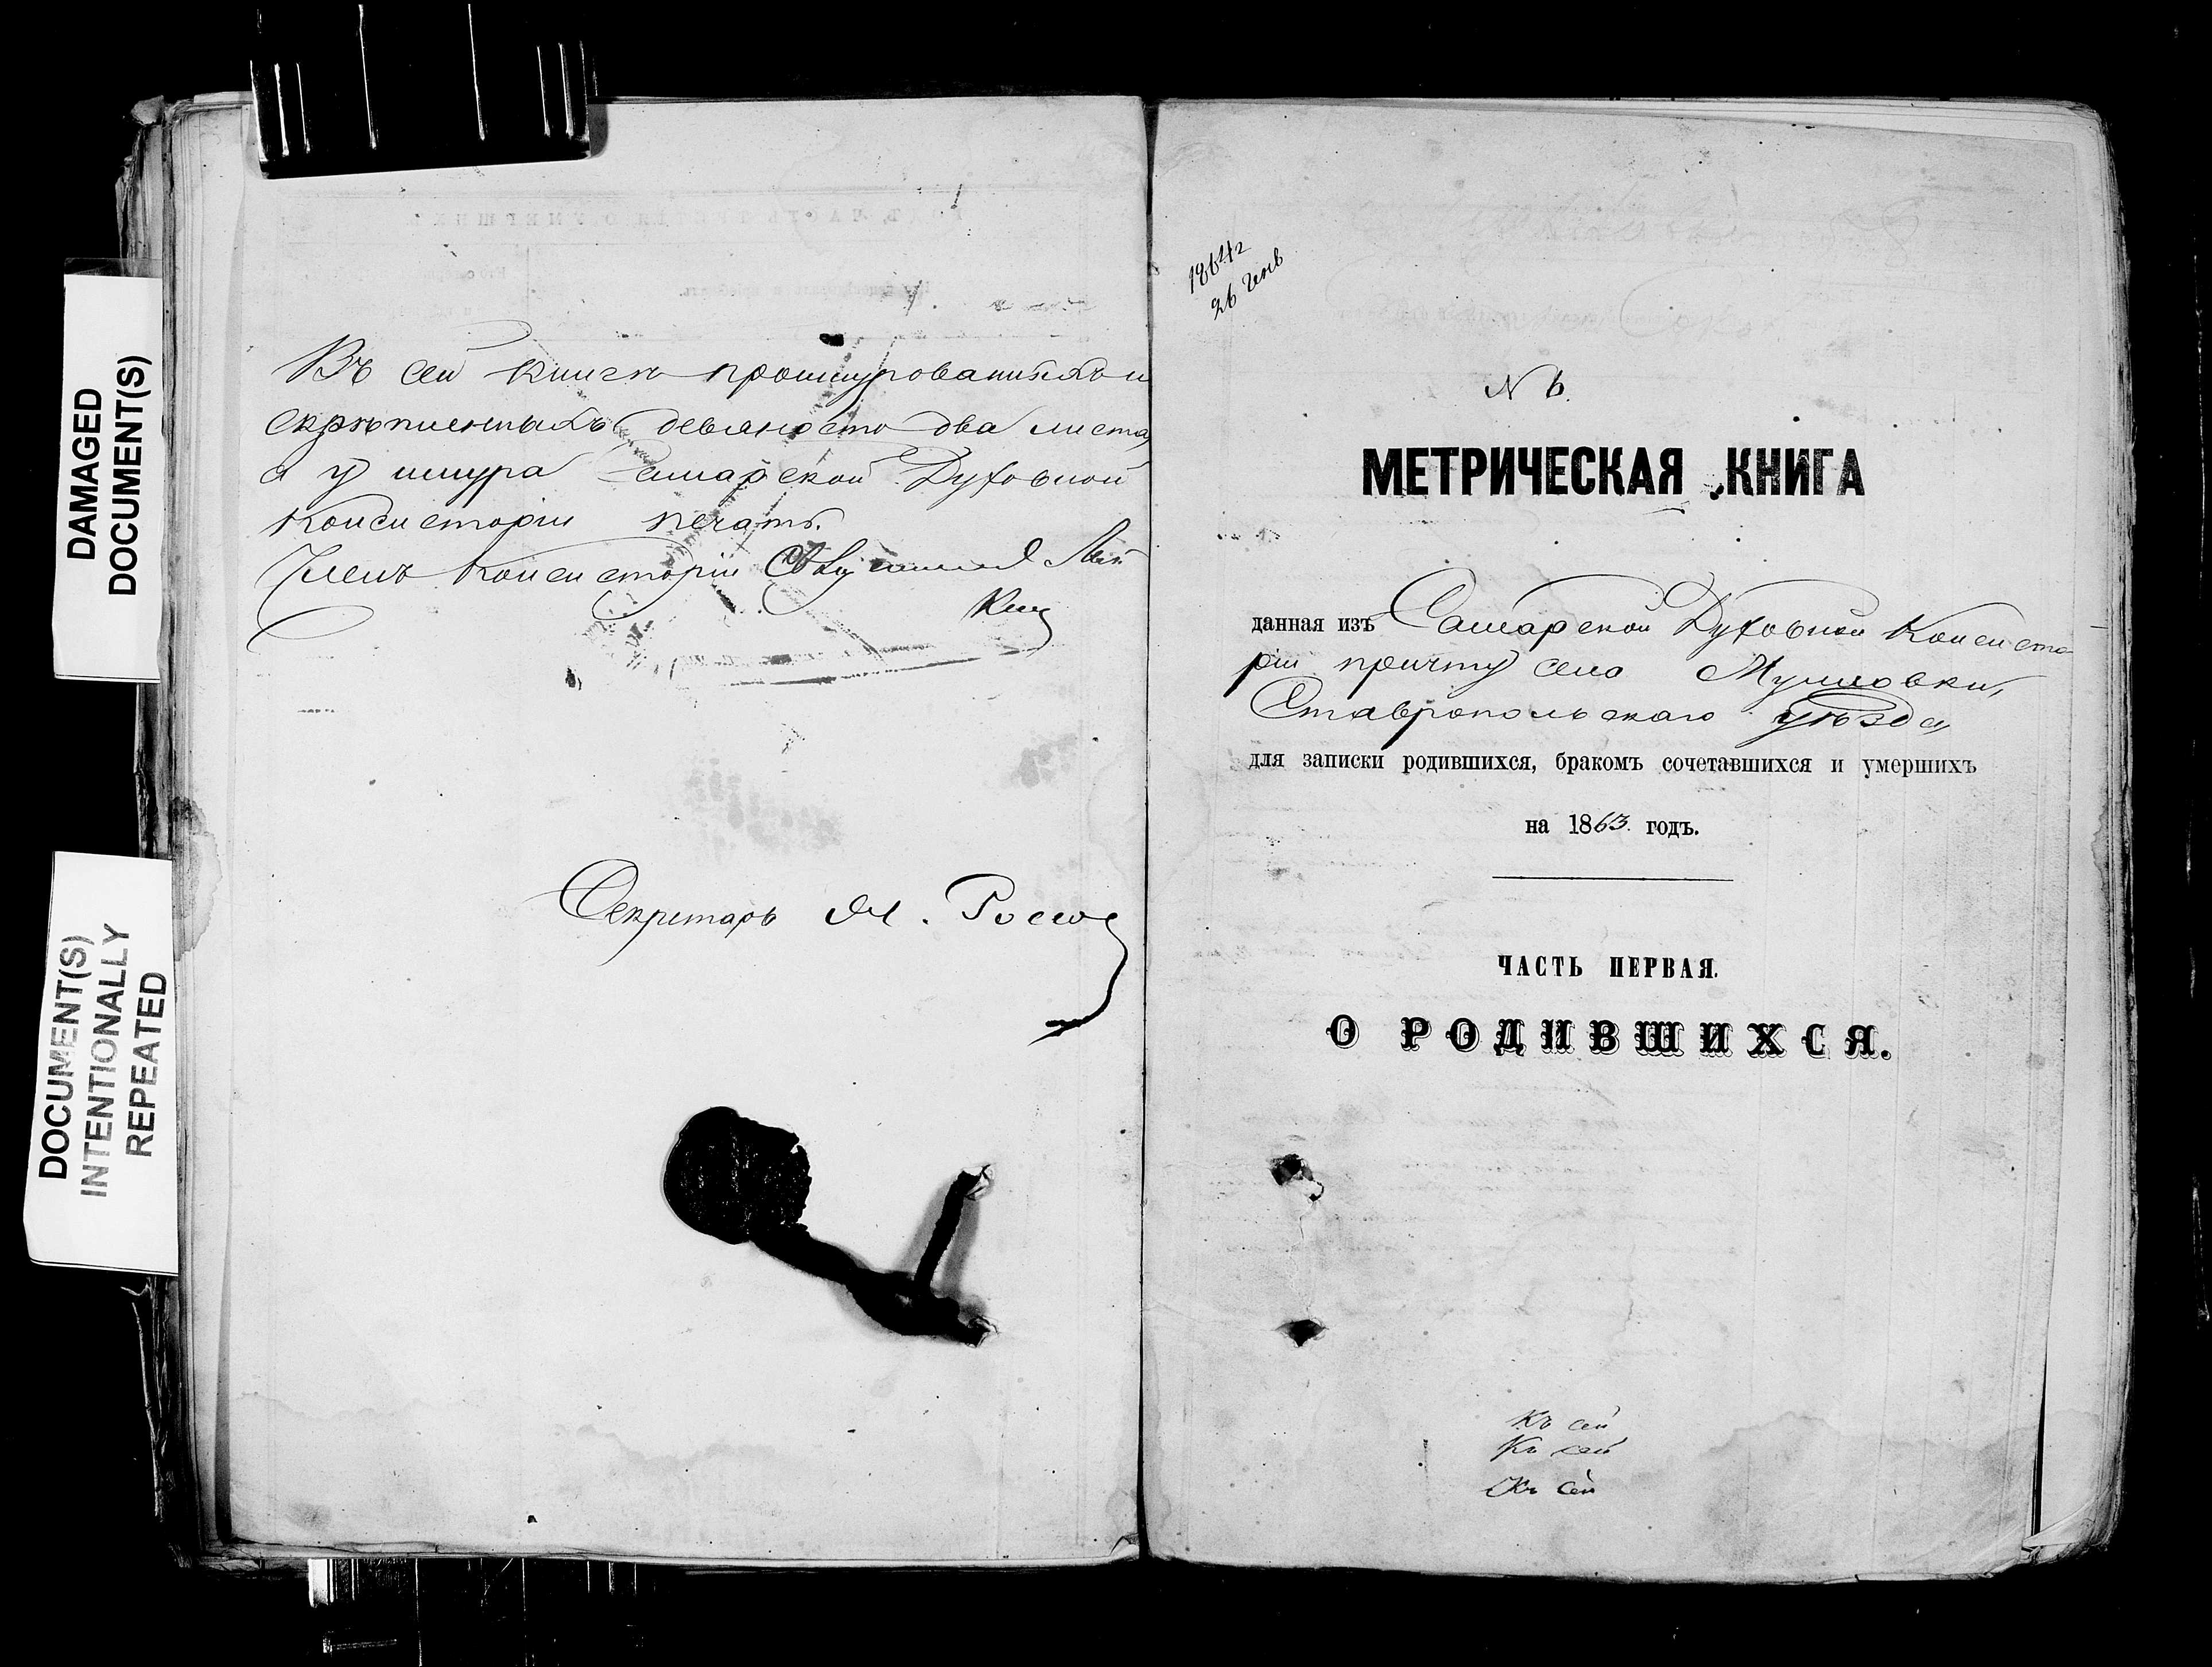 DAMAGED
DOCUMENT(S)
DOCUMENT(S)
INTENTIONALLY
REPEATED
Въ сей книгѣ прошнурованныхъ и
скрѣпленныхъ девяносто два листа,
а у шнура Самарской Духовной
Консисторіи печать.
Членъ Консисторіи
Секретарь
26 Генв
№ 6.
МЕТРИЧЕСКАЯ КНИГА
данная изъ Самарской Духовной Консисто-
ріи причту села
Ставропольскаго уѣзда,
для записки родившихся, бракомъ сочетавшихся и умершихъ
на 1863 годъ.
ЧАСТЬ ПЕРВАЯ.
О РОДИВШИХСЯ.
Къ сей
Къ сей
Къ сей